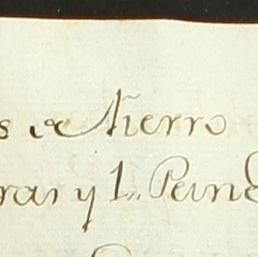 s de Hierro
ras y 1,, Peine